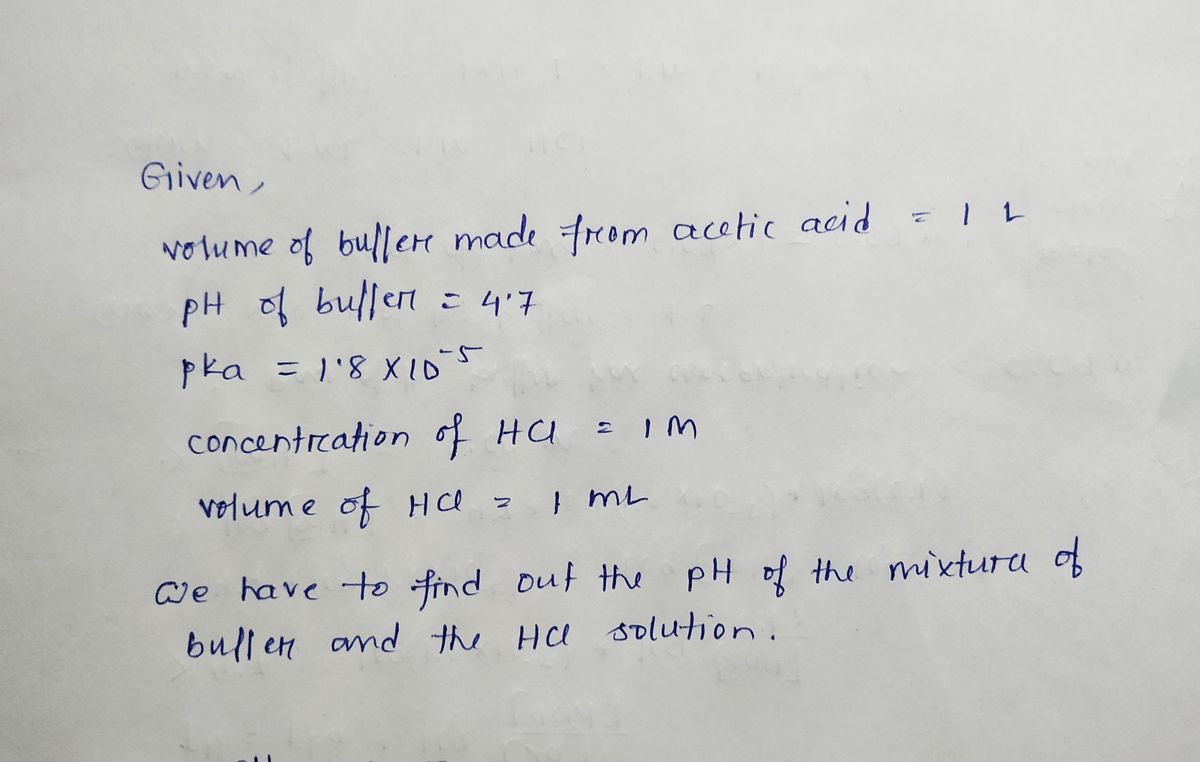 Given,
volume of buffer made from acetic acid = 1 L
pH of buffer = 4.7
pka = 1.8 X10⁻⁵
concentration of HCl = 1 M
volume of HCl = 1 mL
We have to find out the pH of the mixture of
buffer and the HCl solution.